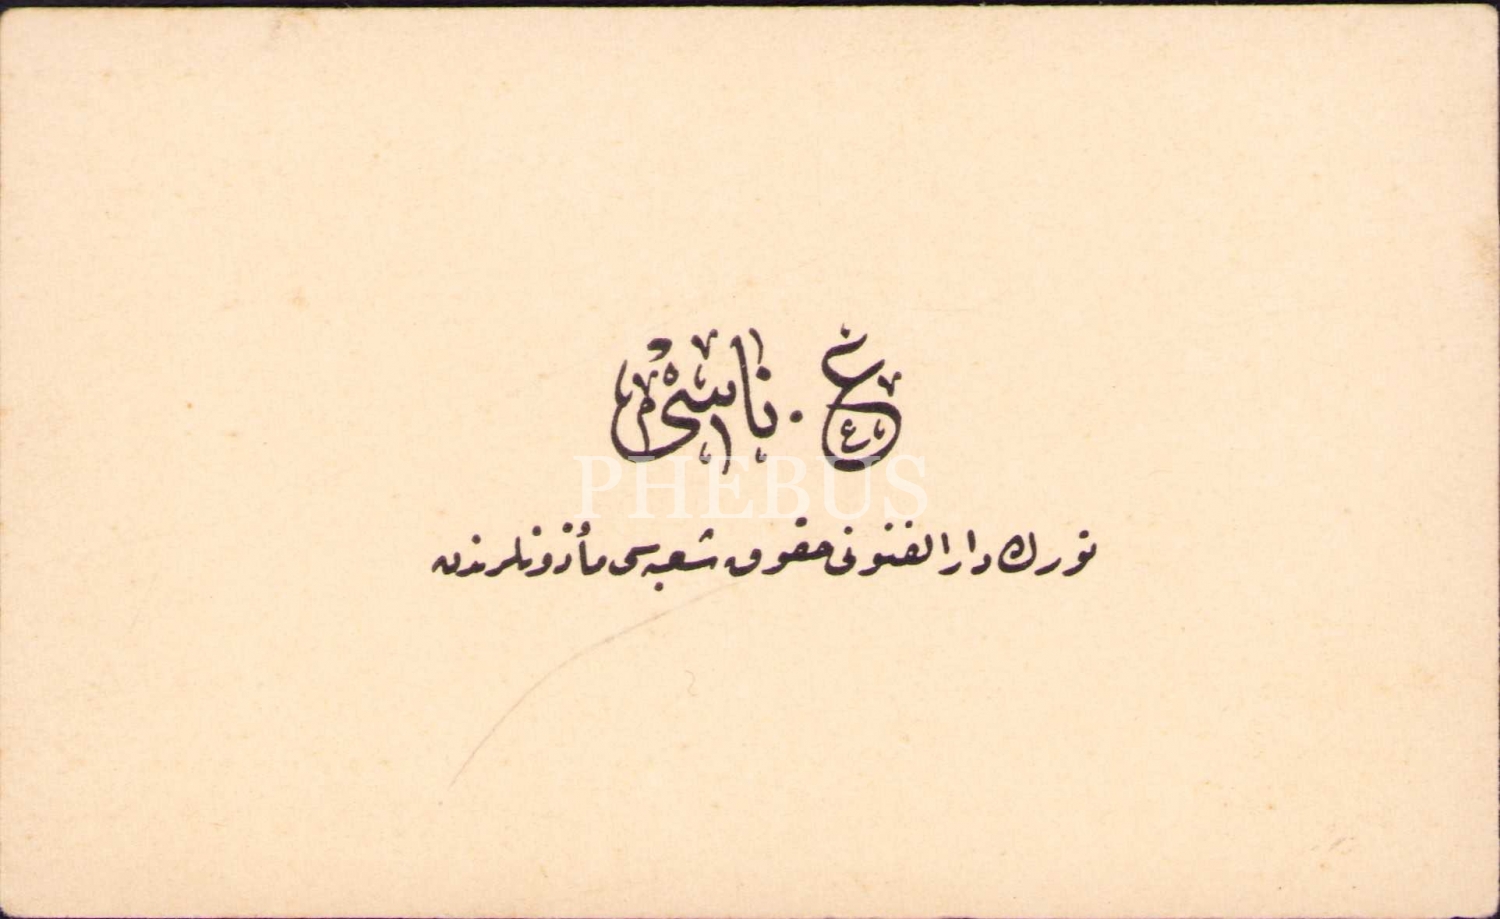 غ. ناسی
تورك دار الفنونی حقوق شعبه‌سی مأذونلرندن
PHEBUS